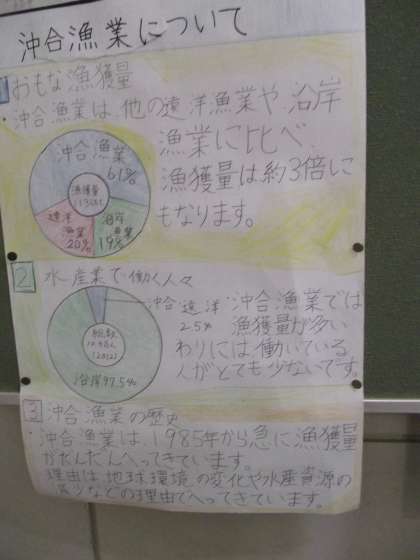 沖合漁業について
1 おもな漁獲量
・沖合漁業は、他の遠洋漁業や沿岸
漁業に比べ、
漁獲量は約3倍に
もなります。
沖合漁業
61%
漁獲量
遠洋
漁業
20%
沿岸
漁業
19%
2 水産業で働く人々
沖合遠洋
2.5%
総数
(2012)
沿岸97.5%
沖合漁業では
漁獲量が多い
わりには、働いている
人がとても少ないです。
3 沖合漁業の歴史
・沖合漁業は、1985年から急に漁獲量
がだんだんへってきています。
理由は、地球環境の変化や水産資源の
などの理由でへってきています。